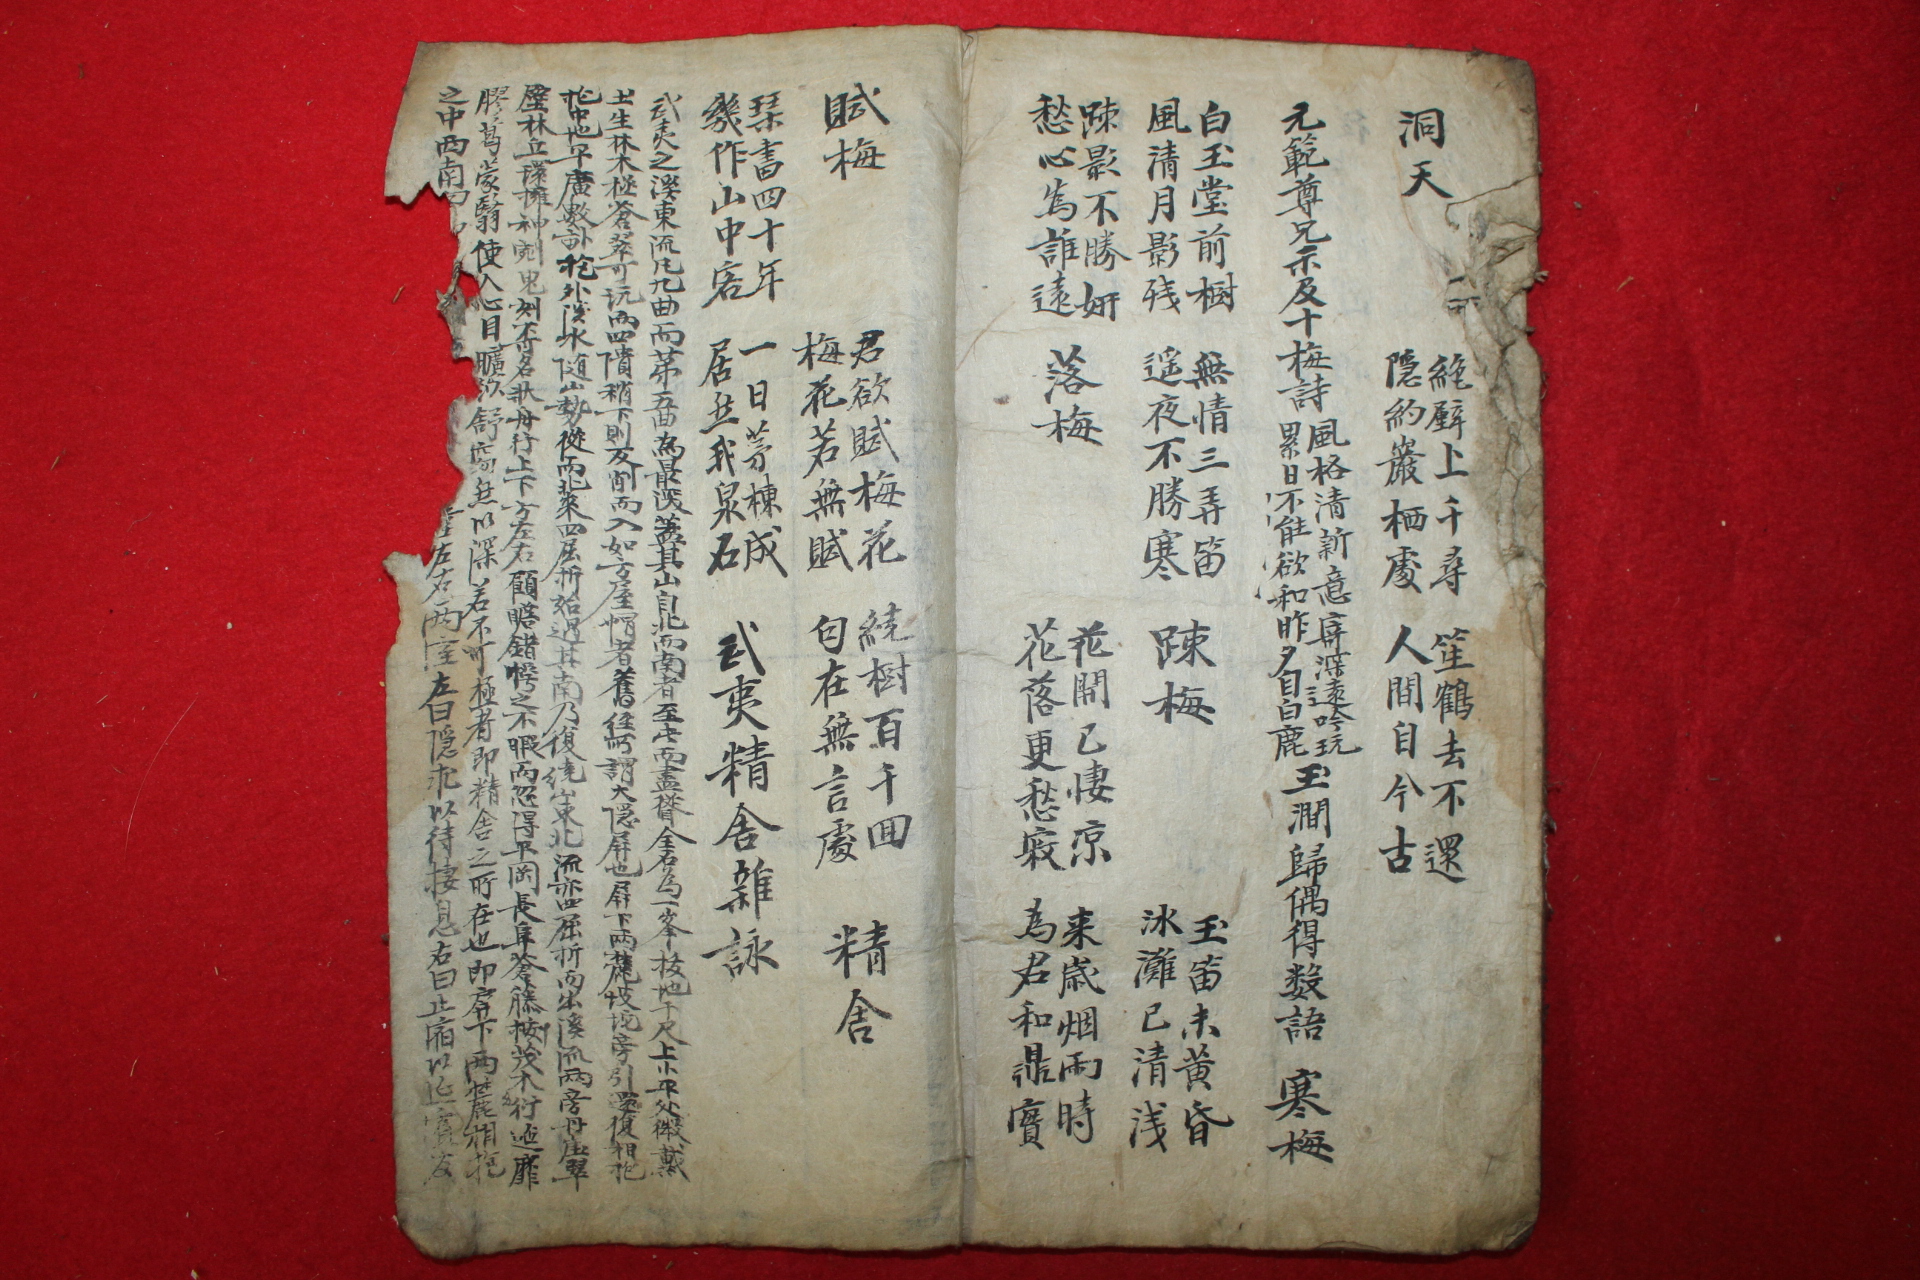 洞天
絶壁上千尋
隠約巖栖處
笙鶴去不還
人間自今古
元範尊兄示及十梅詩
風格清新意寄深遠吟玩
累日不能欲和昨夕自白鹿
玉澗歸偶得数語
寒梅
白玉堂前樹
風清月影残
無情三弄笛
遥夜不勝寒
疎梅
玉笛未黄昏
氷灘已清浅
疎影不勝妍
愁心為誰遠
落梅
花開已悽凉
花落更愁寂
来歳烟雨時
為君和鼎實
賦梅
君欲賦梅花
梅花若無賦
繞樹百千回
句在無言處
精舎
琴書四十年
幾作山中客
一日茅棟成
居然我泉石
武夷精舎雜詠
武夷之溪東流凡九曲而第五曲為最深蓋其山自北而南者至此而盡聳全石為一峯拔地千尺上小平处微戴
土生林木極蒼翠可玩而四隤稍下則反削而入如方屋帽者舊経所謂大隠屏也屏下兩麓坡坨旁引還復相抱
抱中地平廣數畝抱外溪水随山勢從西北來四屈折始過其南乃復繞山東北流亦四屈折而出溪流兩旁丹崖翠
壁林立環擁神剜鬼刻不可名狀舟行上下方左右顧瞻錯愕之不暇而忽得平岡長阜蒼藤按茂木行迤靡
膠葛蒙翳使人心目曠然以舒窈然以深若不可極者即精舎之所在也即屏下兩麓相抱
之中西南 左右兩室左曰隠求以待棲息右曰止宿以延賔友